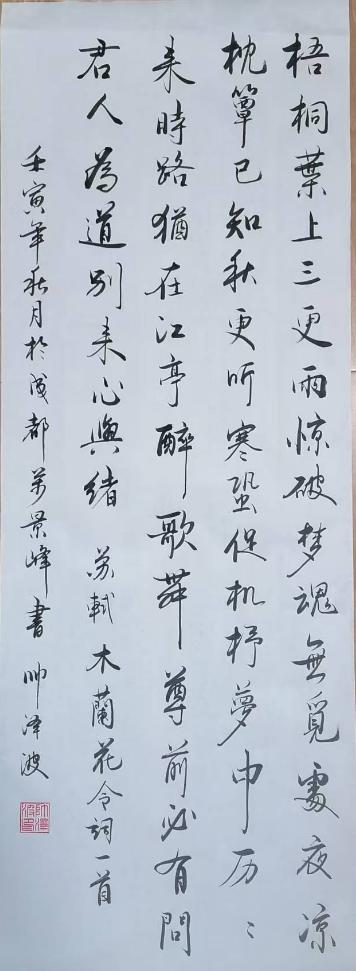 梧桐葉上三更雨惊破梦魂無覓處夜凉
枕簟已知秋更听寒蛩促机杼夢中历〻
来時路猶在江亭醉歌舞尊前必有問
君人為道別来心與緒 苏軾木蘭花令詞一首
壬寅年秋月於成都万景峰書 帅泽波